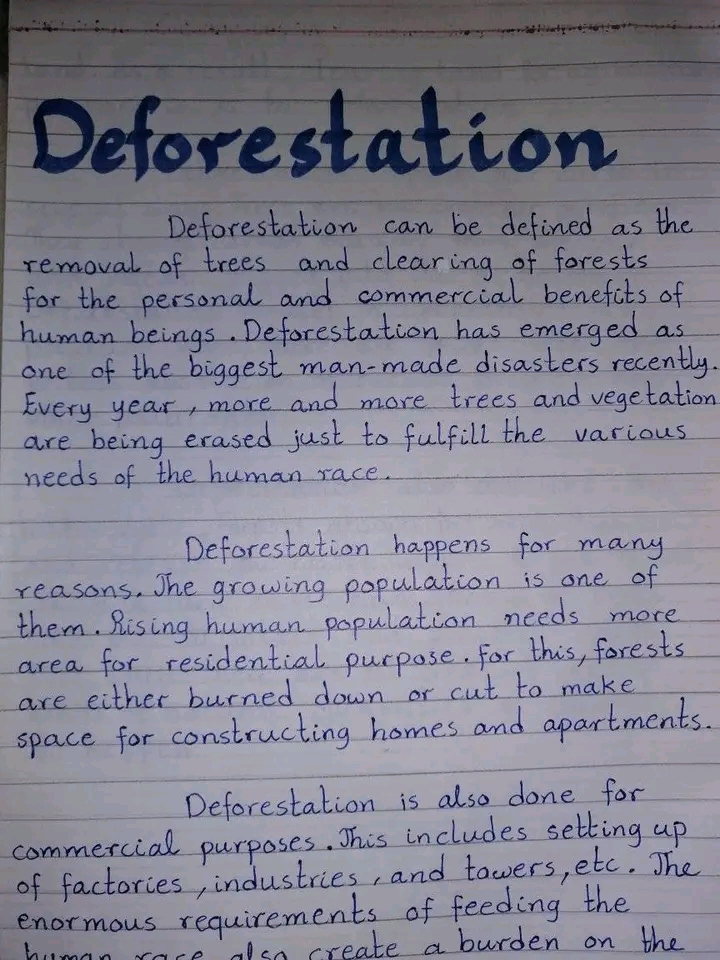 Deforestation
Deforestation can be defined as the
removal of trees and clearing of forests
for the personal and commercial benefits of
human beings. Deforestation has emerged as
one of the biggest man-made disasters recently.
Every year, more and more trees and vegetation
are being erased just to fulfill the various
needs of the human race.
Deforestation happens for many
reasons. The growing population is one of
them. Rising human population needs more
area for residential purpose. for this, forests
are either burned down or cut to make
space for constructing homes and apartments.
Deforestation is also done for
commercial purposes. This includes setting up
of factories, industries, and towers, etc. The
enormous requirements of feeding the
human race also create a burden on the